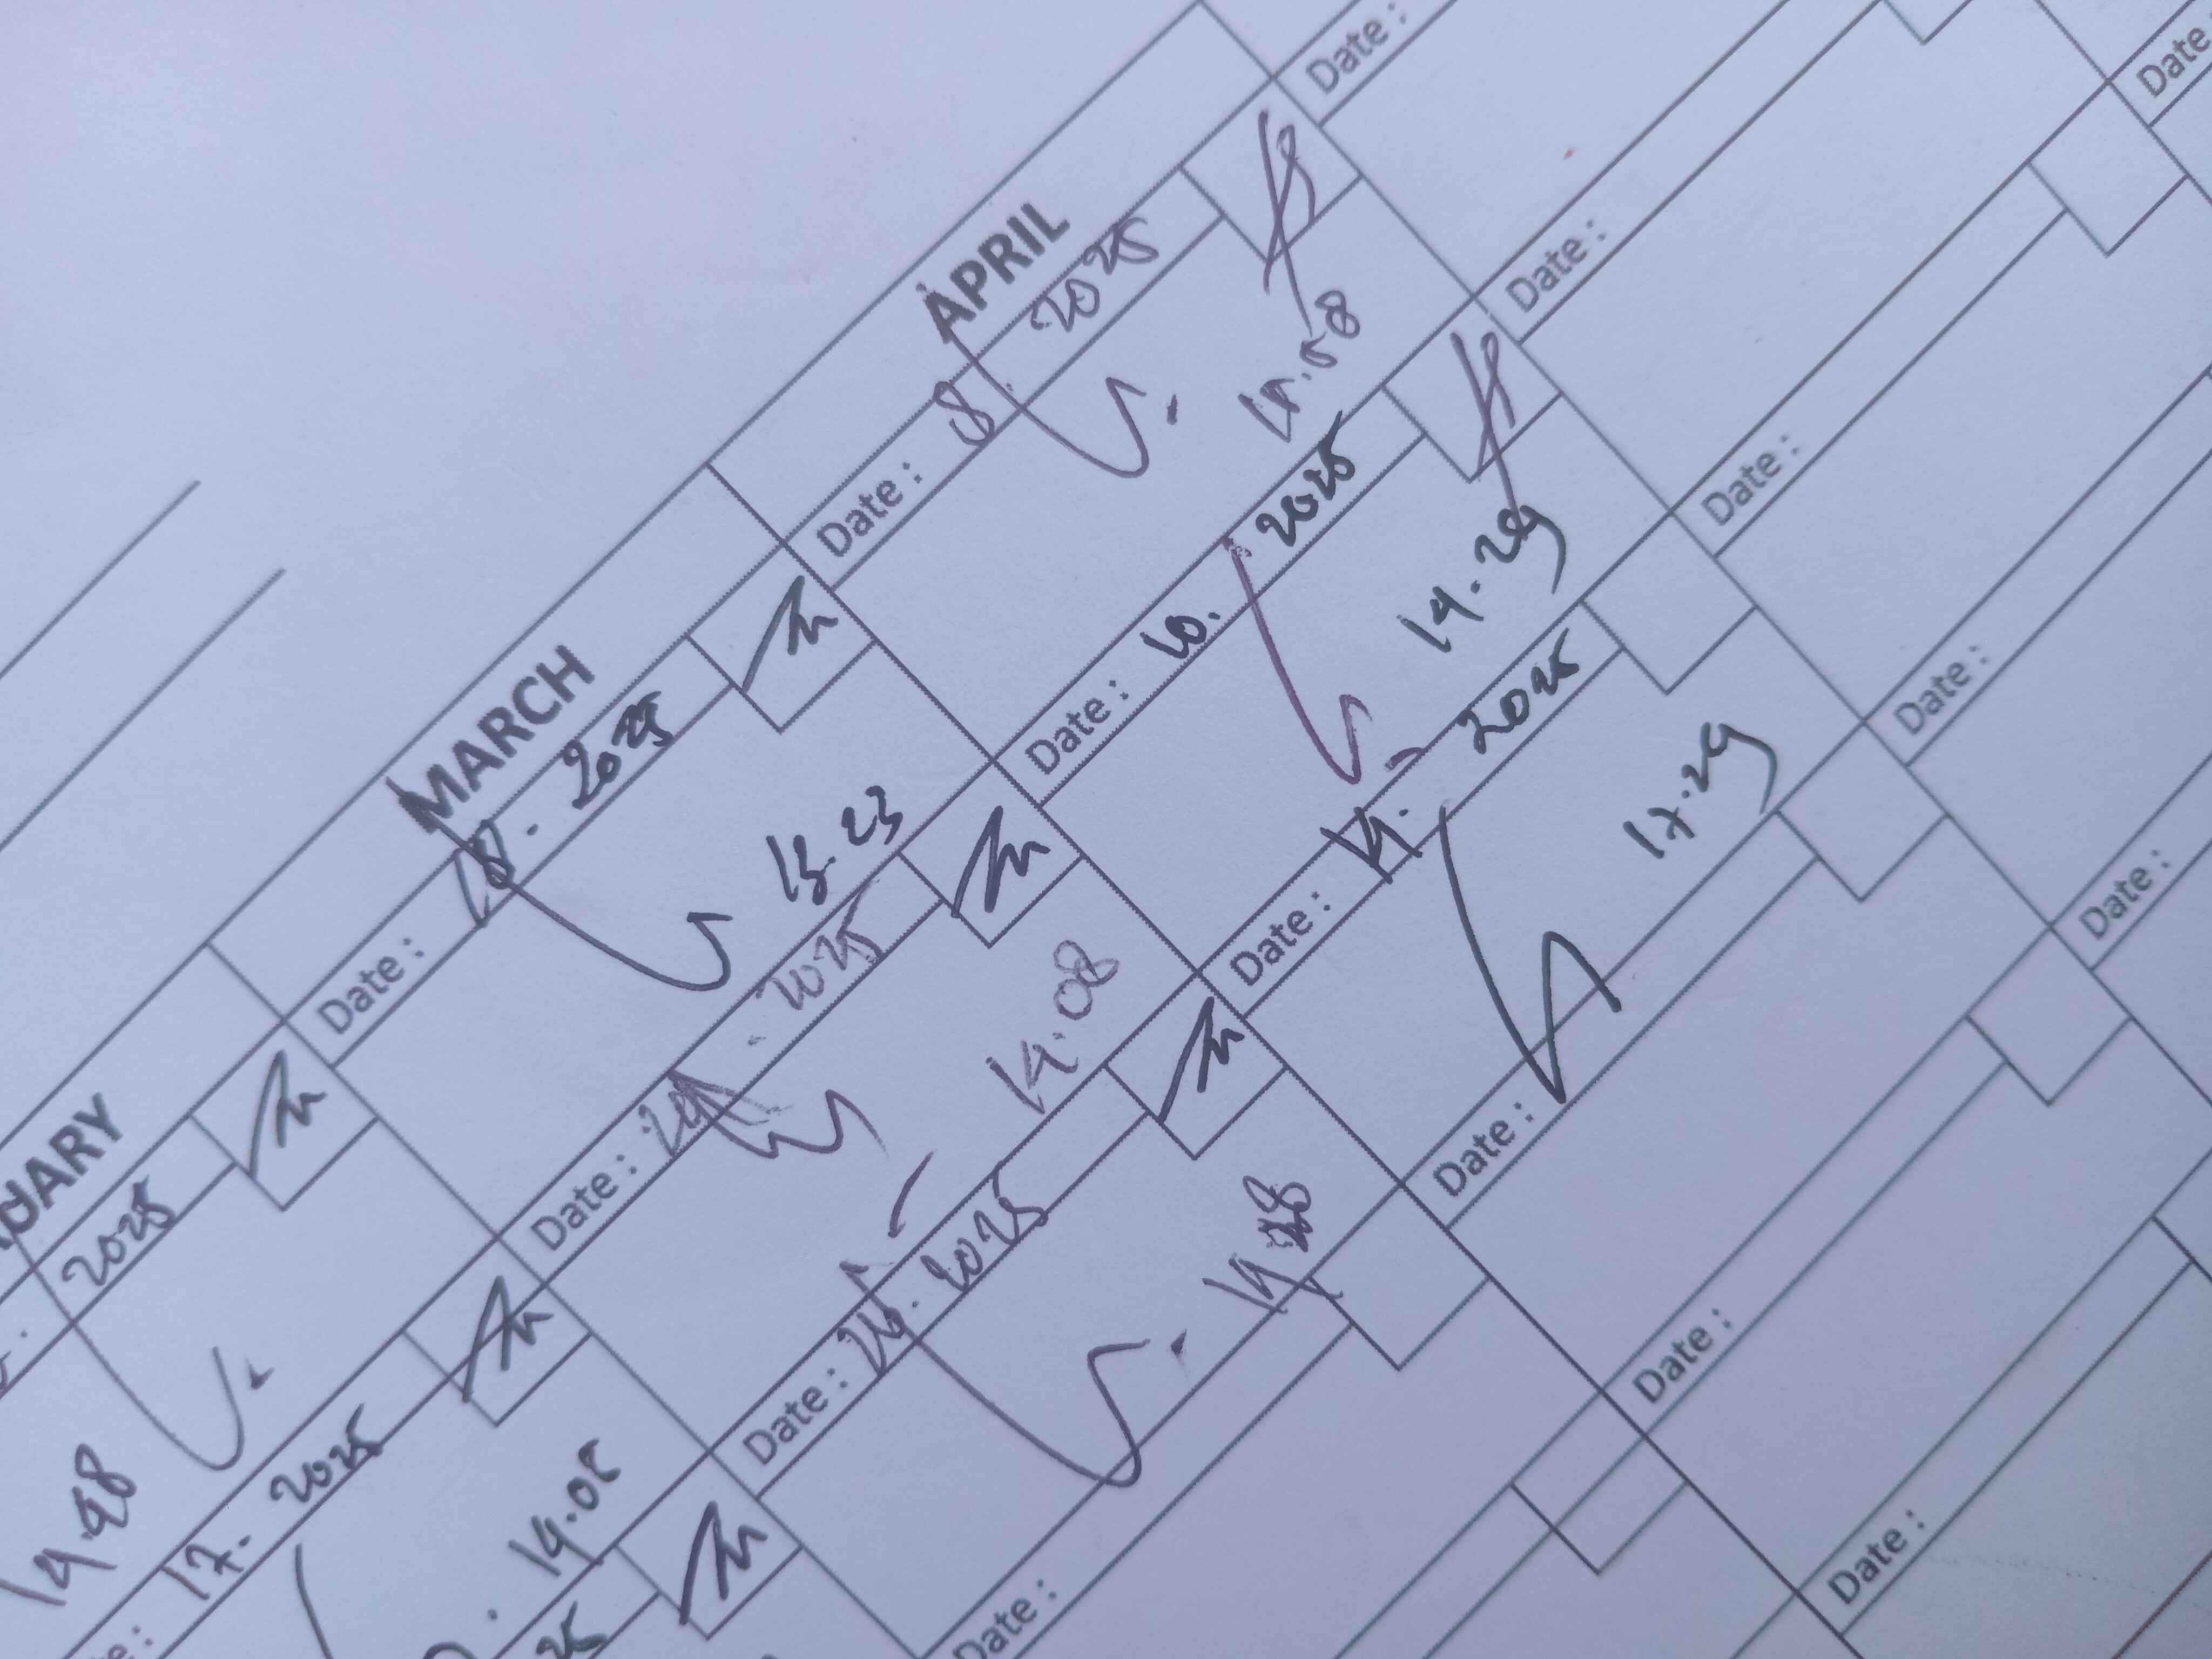 UARY
2025
14.48
17. 2025
14.05
25
MARCH
Date : 18. 2025
15.23
Date : 24. 2025
14.08
Date : 26. 2025
Date :
APRIL
Date : 8. 2025
15.58
Date : 10. 2025
14.29
Date : 14. 2025
17.29
Date :
Date :
Date :
Date :
Date :
Date :
Date :
Date :
Date :
Date